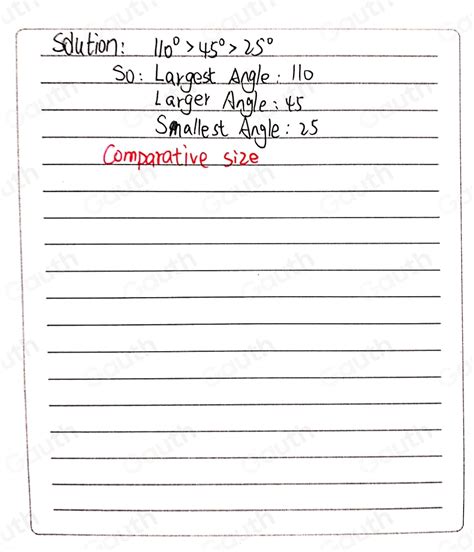 Solution: 110° > 45° > 25°
So: Largest Angle: 110
Larger Angle: 45
Smallest Angle: 25
Comparative size